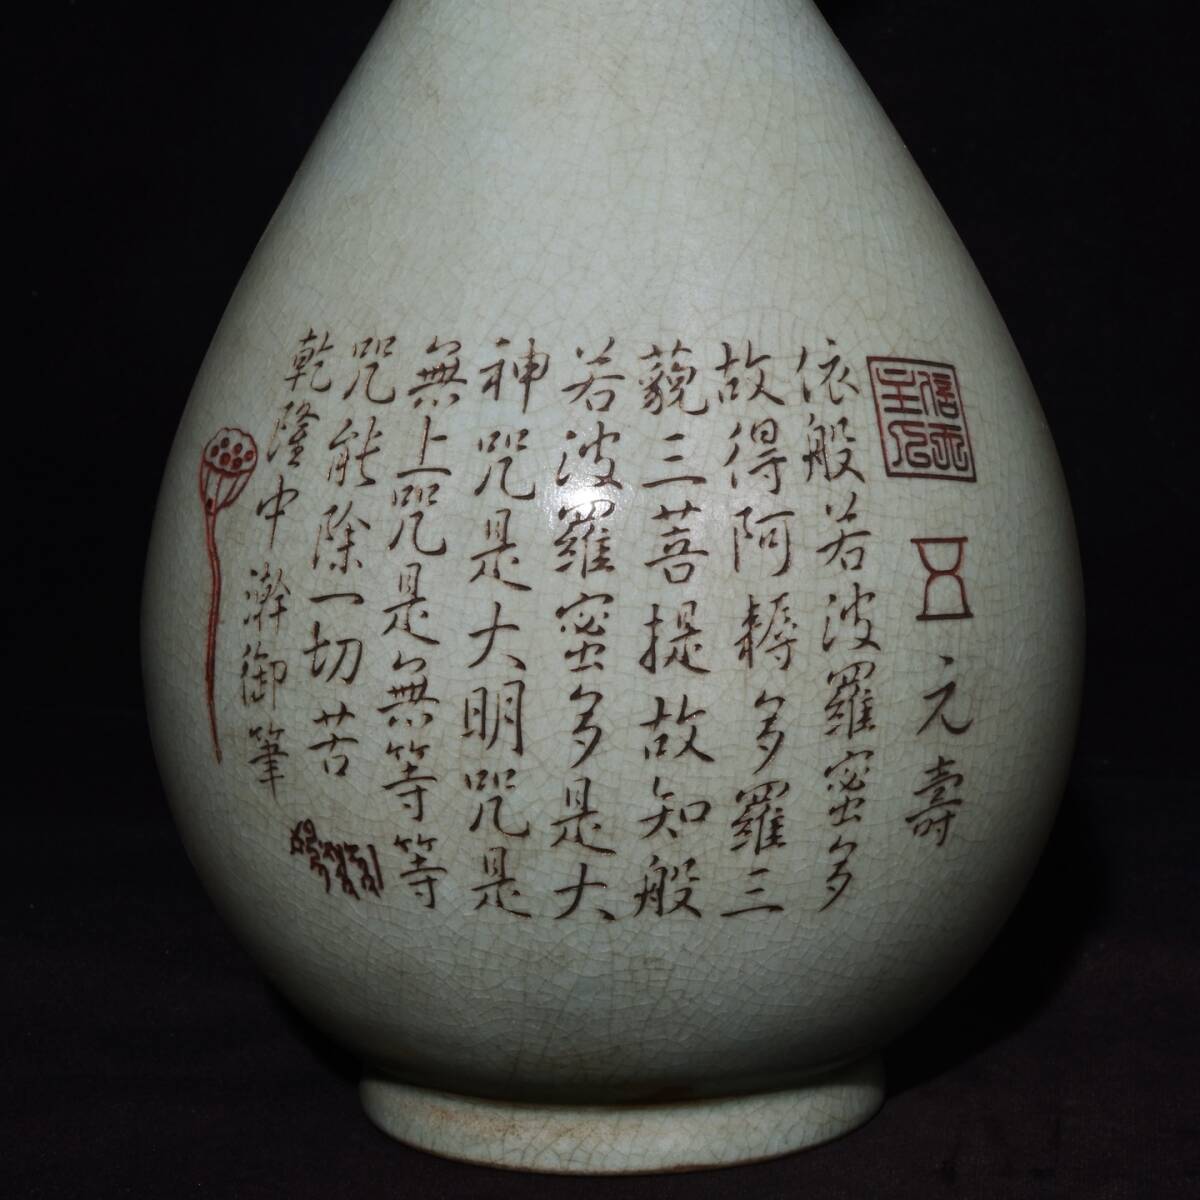 信天主人
元壽
依般若波羅蜜多
故得阿耨多羅三
藐三菩提故知般
若波羅蜜多是大
神咒是大明咒是
無上咒是無等等
咒能除一切苦
乾隆中澣御筆